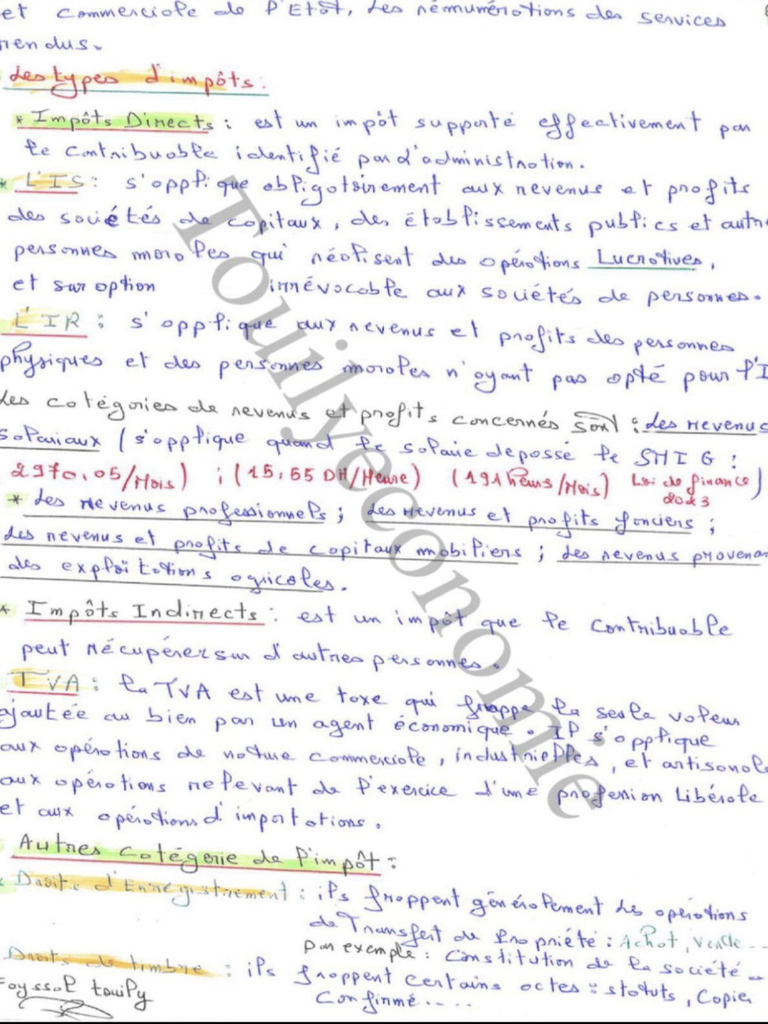 et commerciale de l'Etat, des rémunérations des services
rendus.
Les types d'impôts :
* Impôts Directs : est un impôt supporté effectivement par
le contribuable identifié par l'administration.
* L'IS : s'applique obligatoirement aux revenus et profits
des sociétés de capitaux, des établissements publics et autre
personnes morales qui réalisent des opérations Lucratives,
et sur option irrévocable aux sociétés de personnes.
L'IR : s'applique aux revenus et profits des personnes
physiques et des personnes morales n'ayant pas opté pour l'I
Les catégories de revenus et profits concernés sont : des Revenus
Salariaux (s'applique quand le salaire depassé le SMIG :
2970,05/Mois) ; (15,55 DH/Heure) (191 heurs/Mois) Loi de finance 2023)
* Les Revenus professionnels ; des Revenus et profits fonciers ;
des revenus et profits de capitaux mobiliers ; des revenus provenan
des exploitations agricoles.
* Impôts Indirects : est un impôt que le contribuable
peut Récupérer sur d'autres personnes.
TVA : la TVA est une taxe qui frappe la seule valeur
ajoutée au bien par un agent économique. Il s'applique
aux opérations de nature commerciale, industrielles, et artisanale
aux opérations relevant de l'exercice d'une profession Libérale
et aux opérations d'importations.
Autres catégorie de l'impôt :
Droits d'Enregistrement : ils frappent généralement les opérations
de Transfert de Propriété : Achat, Vente...
par exemple : Constitution de la société...
Droits de timbre : ils frappent certains actes : statuts, Copier
Confirmé....
Fayssal touily
Touilyeconomie